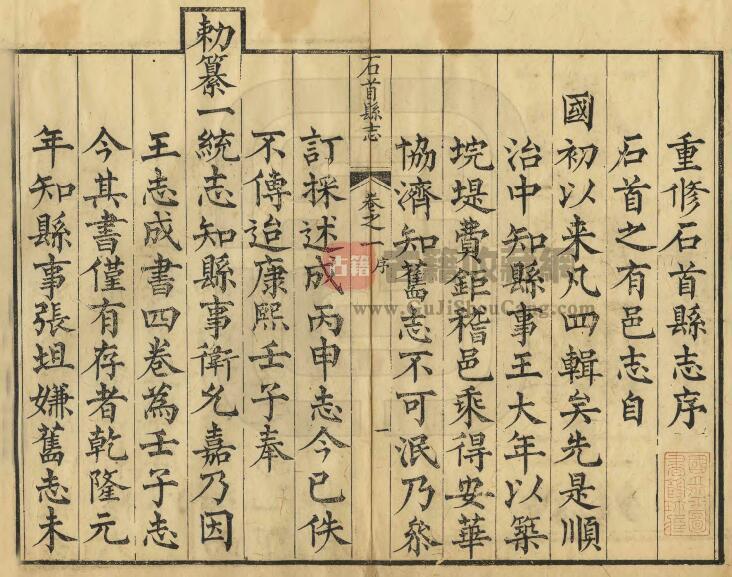 重修石首縣志序
石首之有邑志自
國初以来凡四輯矣先是順
治中知縣事王大年以築
垸堤費鉅稽邑乘得安華
協濟知舊志不可泯乃叅
石首縣志
卷之一 序
一
訂採述成丙申志今已佚
不傳迨康熙壬子奉
勅纂一統志知縣事衛允嘉乃因
王志成書四卷為壬子志
今其書僅有存者乾隆元
年知縣事張坦嫌舊志未
古籍
www.GuJiShouCang.com